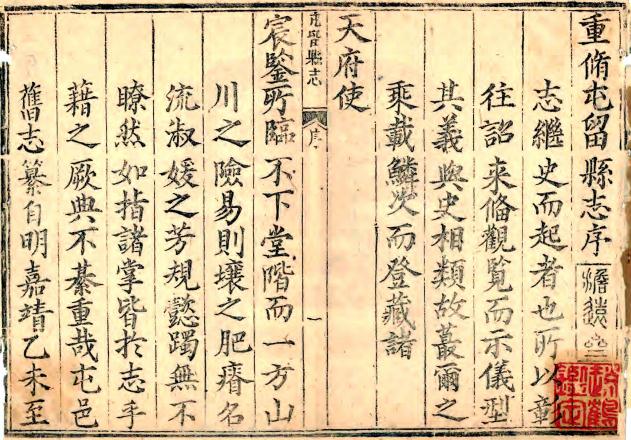 重脩屯留縣志序
志繼史而起者也所以彰
往詔来俻觀覧而示儀型
其義與史相類故蕞爾之
乘載鱗次而登藏諸
天府使
屯留縣志 序 一
宸鍳所臨不下堂階而一方山
川之險易則壤之肥瘠名
流淑媛之芳規懿躅無不
瞭然如指諸掌皆扵志乎
藉之厥典不綦重哉屯邑
舊志纂自明嘉靖乙未至